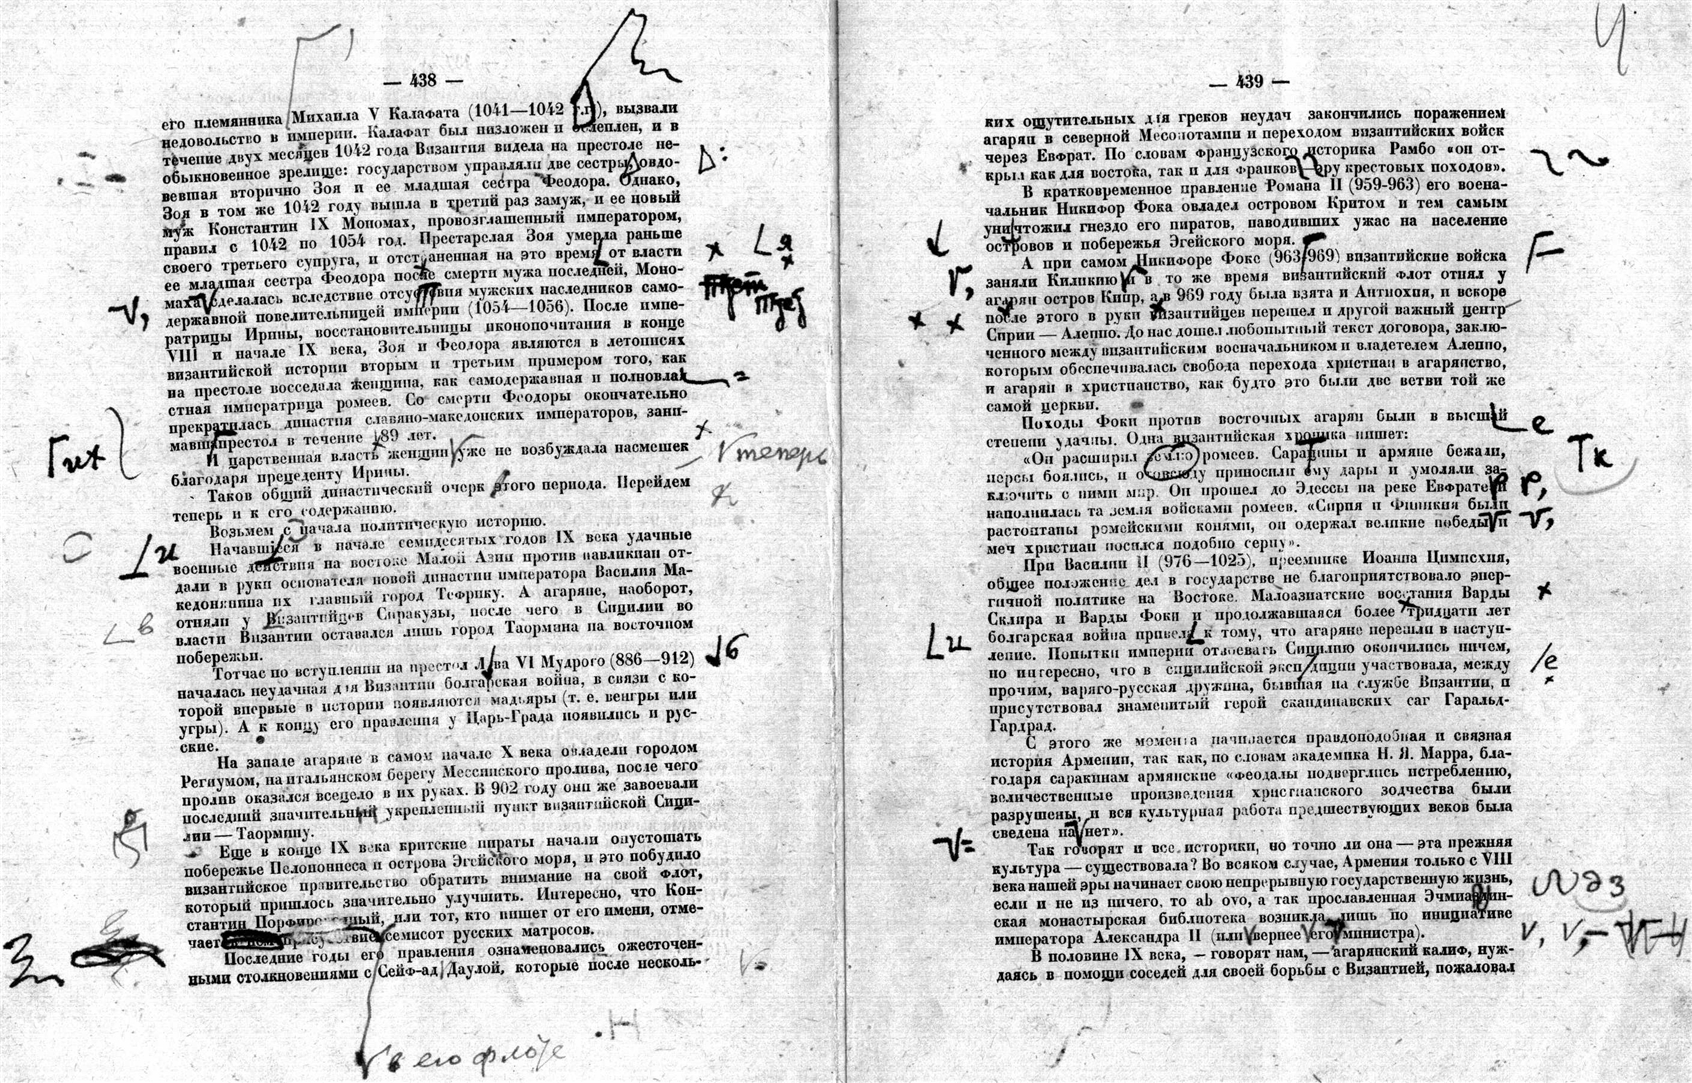 — 438 —
его племянника Михаила V Калафата (1041—1042 г.г.), вызвали
недовольство в империи. Калафат был низложен и ослеплен, и в
течение двух месяцев 1042 года Византия видела на престоле не-
обыкновенное зрелище: государством управляли две сестры, овдо-
вевшая вторично Зоя и ее младшая сестра Феодора. Однако,
Зоя в том же 1042 году вышла в третий раз замуж, и ее новый
муж Константин IX Мономах, провозглашенный императором,
правил с 1042 по 1054 год. Престарелая Зоя умерла раньше
своего третьего супруга, и отстраненная на это время от власти
ее младшая сестра Феодора после смерти мужа последней, Моно-
маха сделалась вследствие отсуствия мужских наследников само-
державной повелительницей империи (1054—1056). После импе-
ратрицы Ирины, восстановительницы иконопочитания в конце
VIII и начале IX века, Зоя и Феодора являются в летописях
византийской истории вторым и третьим примером того, как
на престоле восседала женщина, как самодержавная и полновла-
стная императрица ромеев. Со смерти Феодоры окончательно
прекратилась династия славяно-македонских императоров, зани-
мавшая престол в течение 189 лет.
И царственная власть женщин уже не возбуждала насмешек
благодаря прецеденту Ирины.
Таков общий династический очерк этого периода. Перейдем
теперь и к его содержанию.
Возьмем с начала политическую историю.
Начавшиеся в начале семидесятых годов IX века удачные
военные действия на востоке Малой Азии против павликиан от-
дали в руки основателя новой династии императора Василия Ма-
кедонянина их главный город Тефрику. А агаряне, наоборот,
отняли у Византийцев Сиракузы, после чего в Сицилии во
власти Византии оставался лишь город Таормина на восточном
побережьи.
Тотчас по вступлении на престол Льва VI Мудрого (886—912)
началась неудачная для Византии болгарская война, в связи с ко-
торой впервые в истории появляются мадьяры (т. е. венгры или
угры). А к концу его правления у Царь-Града появились и рус-
ские.
На западе агаряне в самом начале X века овладели городом
Региумом, на итальянском берегу Мессинского пролива, после чего
пролив оказался всецело в их руках. В 902 году они же завоевали
последний значительный укрепленный пункт византийской Сици-
лии — Таормину.
Еще в конце IX века критские пираты начали опустошать
побережье Пелопоннеса и острова Эгейского моря, и это побудило
византийское правительство обратить внимание на свой флот,
который пришлось значительно улучшить. Интересно, что Кон-
стантин Порфирородный, или тот, кто пишет от его имени, отме-
чает присутствие семисот русских матросов.
Последние годы его правления ознаменовались ожесточен-
ными столкновениями с Сейф-ад Даулой, которые после несколь-
теперь
в его флоте
— 439 —
ких ощутительных для греков неудач закончились поражением
агарян в северной Месопотамии и переходом византийских войск
через Евфрат. По словам французского историка Рамбо «он от-
крыл как для востока, так и для франков эру крестовых походов».
В кратковременное правление Романа II (959-963) его воена-
чальник Никифор Фока овладел островом Критом и тем самым
уничтожил гнездо его пиратов, наводивших ужас на население
островов и побережья Эгейского моря.
А при самом Никифоре Фоке (963/969) византийские войска
заняли Киликию и в то же время византийский флот отнял у
агарян остров Кипр, а в 969 году была взята и Антиохия, и вскоре
после этого в руки византийцев перешел и другой важный центр
Сирии — Алеппо. До нас дошел любопытный текст договора, заклю-
ченного между византийским военачальником и владетелем Алеппо,
которым обеспечивалась свобода перехода христиан в агарянство,
и агарян в христианство, как будто это были две ветви той же
самой церкви.
Походы Фоки против восточных агарян были в высшай
степени удачны. Одна византийская хроника пишет:
«Он расширил землю ромеев. Сарацины и армяне бежали,
персы боялись, и отовсюду приносили ему дары и умоляли за-
ключить с ними мир. Он прошел до Эдессы на реке Евфрате и
наполнилась та земля войсками ромеев. «Сирия и Финикия были
растоптаны ромейскими конями, он одержал великие победы и
меч христиан носился подобно серпу».
При Василии II (976—1025), преемнике Иоанна Цимисхия,
общее положение дел в государстве не благоприятствовало энер-
гичной политике на Востоке. Малоазиатские восстания Варды
Склира и Варды Фоки и продолжавшаяся более тридцати лет
болгарская война привела к тому, что агаряне перешли в наступ-
ление. Попытки империи отвоевать Сицилию окончились ничем,
но интересно, что в сицилийской экспедиции участвовала, между
прочим, варяго-русская дружина, бывшая на службе Византии, и
присутствовал знаменитый герой скандинавских саг Гаральд-
Гардрад.
С этого же момента начинается правдоподобная и связная
история Армении, так как, по словам академика Н. Я. Марра, бла-
годаря саракинам армянские «феодалы подверглись истреблению,
величественные произведения христианского зодчества были
разрушены, и вся культурная работа предшествующих веков была
сведена на нет».
Так говорят и все историки, но точно ли она — эта прежняя
культура — существовала? Во всяком случае, Армения только с VIII
века нашей эры начинает свою непрерывную государственную жизнь,
если и не из ничего, то ab ovo, а так прославленная Эчмиадзин-
ская монастырская библиотека возникла лишь по инициативе
императора Александра II (или вернее его министра).
В половине IX века, — говорят нам, — агарянский калиф, нуж-
даясь в помощи соседей для своей борьбы с Византией, пожаловал